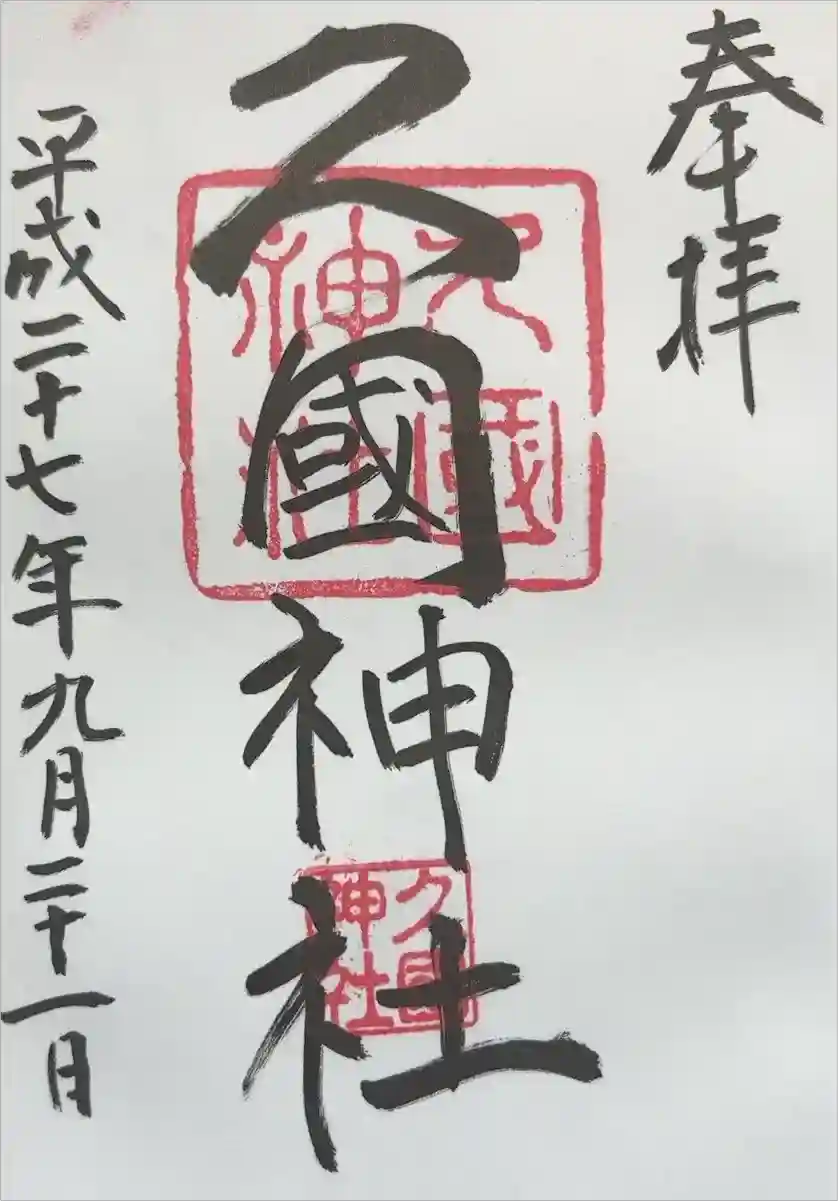 奉拝
久國神社
久國神社
久國神社
平成二十七年九月二十一日